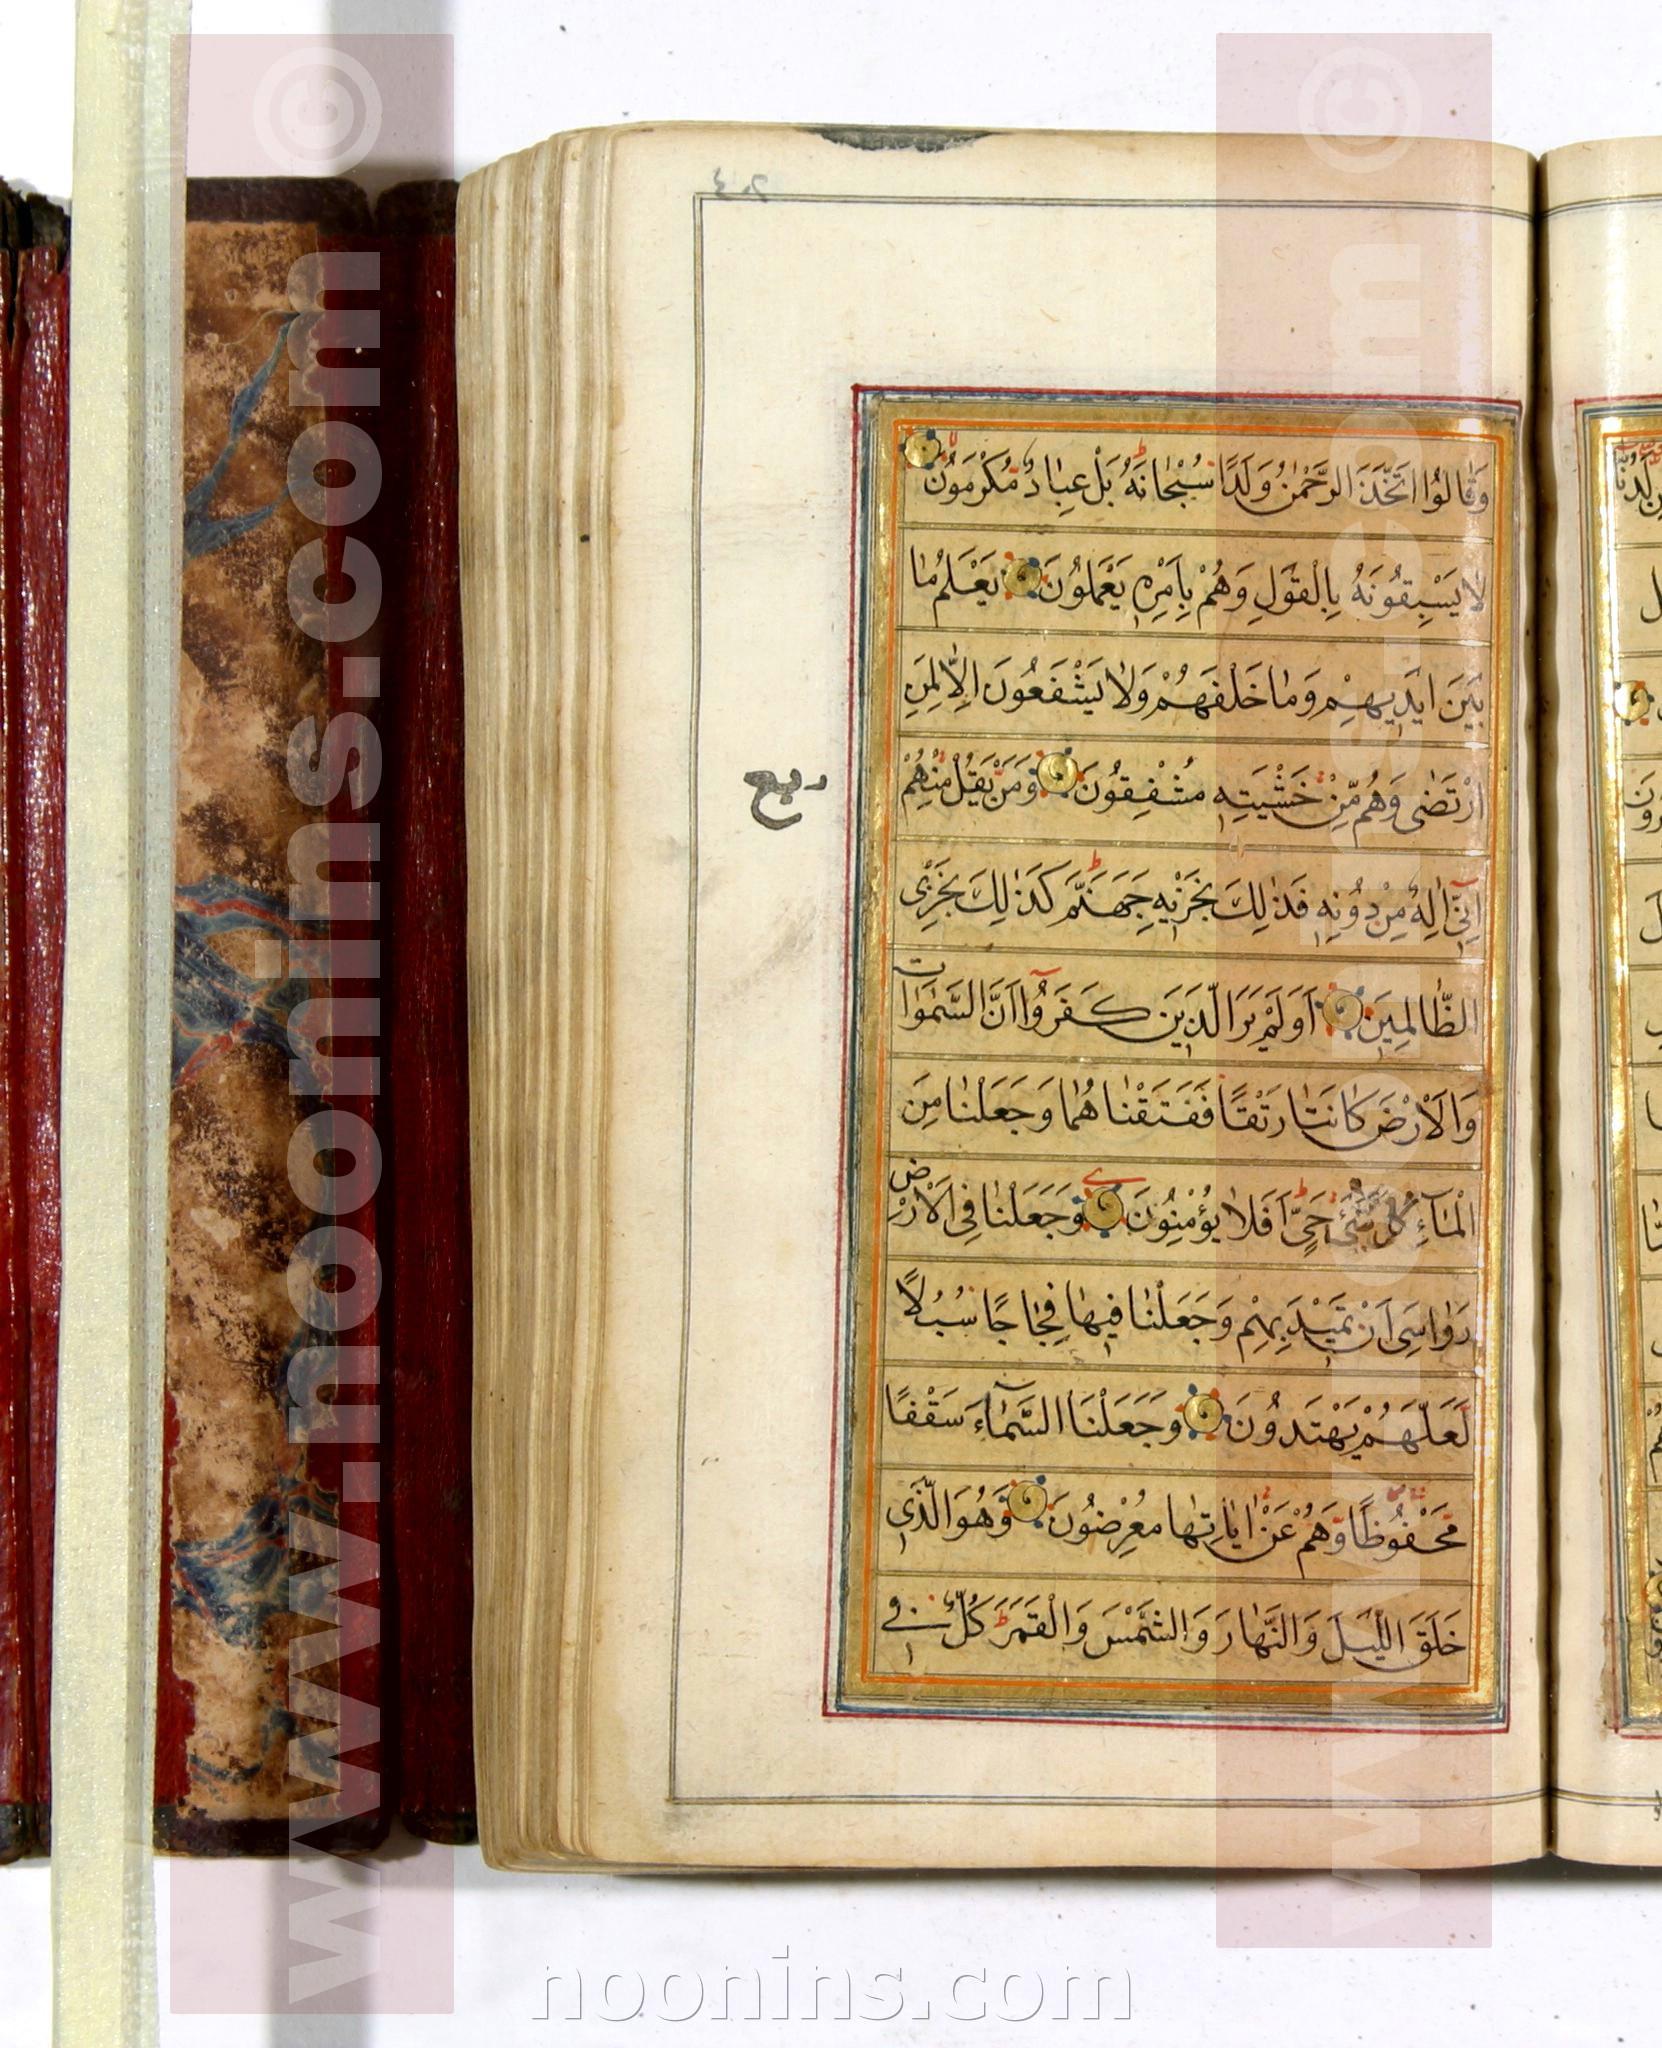 وَقَالُوا اتَّخَذَ الرَّحْمٰنُ وَلَدًا سُبْحَانَهُ بَلْ عِبَادٌ مُكْرَمُونَ
لَا يَسْبِقُونَهُ بِالْقَوْلِ وَهُمْ بِاَمْرِهِ يَعْمَلُونَ يَعْلَمُ مَا
بَيْنَ اَيْدِيهِمْ وَمَا خَلْفَهُمْ وَلَا يَشْفَعُونَ اِلَّا لِمَنِ
ارْتَضٰى وَهُمْ مِنْ خَشْيَتِهِ مُشْفِقُونَ وَمَنْ يَقُلْ مِنْهُمْ
اِنِّي اِلٰهٌ مِنْ دُونِهِ فَذٰلِكَ نَجْزِيهِ جَهَنَّمَ كَذٰلِكَ نَجْزِي
الظَّالِمِينَ اَوَلَمْ يَرَ الَّذِينَ كَفَرُوا اَنَّ السَّمٰوَاتِ
وَالْاَرْضَ كَانَتَا رَتْقًا فَفَتَقْنَاهُمَا وَجَعَلْنَا مِنَ
الْمَآءِ كُلَّ شَيْءٍ حَيٍّ اَفَلَا يُؤْمِنُونَ وَجَعَلْنَا فِي الْاَرْضِ
رَوَاسِيَ اَنْ تَمِيدَ بِهِمْ وَجَعَلْنَا فِيهَا فِجَاجًا سُبُلًا
لَعَلَّهُمْ يَهْتَدُونَ وَجَعَلْنَا السَّمَآءَ سَقْفًا
مَحْفُوظًا وَهُمْ عَنْ اٰيَاتِهَا مُعْرِضُونَ وَهُوَ الَّذِي
خَلَقَ اللَّيْلَ وَالنَّهَارَ وَالشَّمْسَ وَالْقَمَرَ كُلٌّ فِي
ربع
www.noonins.com ©
www.noonins.com ©
noonins.com